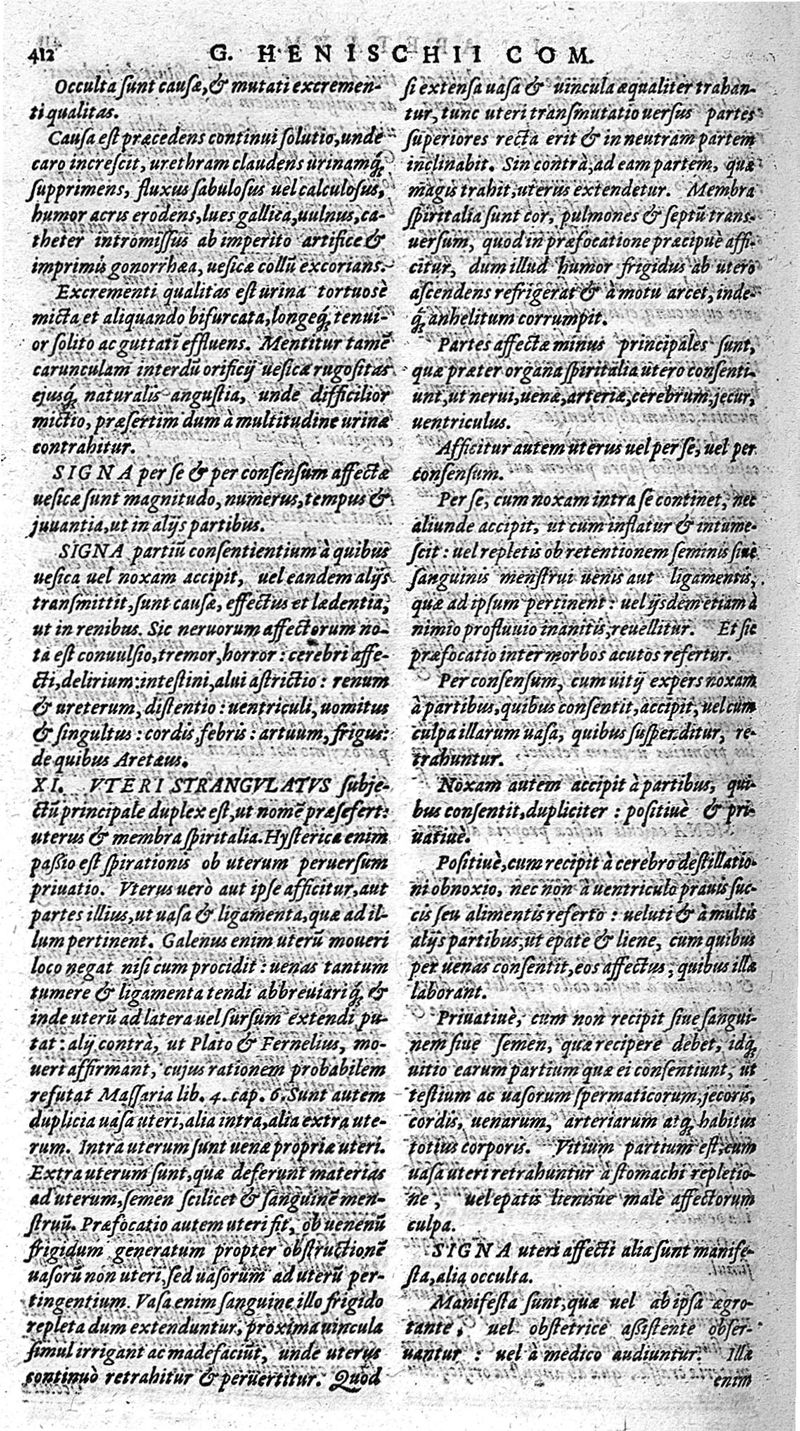 412
G. HENISCHII COM.
Occulta sunt causæ, & mutati excremen-
ti qualitas.
Causa est præcedens continui solutio, unde
caro increscit, urethram claudens urinamq́;
supprimens, fluxus sabulosus uel calculosus,
humor acris erodens, lues gallica, uulnus, ca-
theter intromissus ab imperito artifice &
imprimis gonorrhæa, uesicæ collũ excorians.
Excrementi qualitas est urina tortuosè
micta et aliquando bifurcata, longeq́; tenui-
or solito ac guttatĩ effluens. Mentitur tamẽ
carunculam interdũ orificij uesicæ rugositas
ejusq́; naturalis angustia, unde difficilior
mictio, præsertim dum à multitudine urinæ
contrahitur.
SIGNA per se & per consensum affectæ
uesicæ sunt magnitudo, numerus, tempus &
juuantia, ut in alijs partibus.
SIGNA partiũ consentientium à quibus
uesica uel noxam accipit, uel eandem alijs
transmittit, sunt causæ, effectus et lædentia,
ut in renibus. Sic neruorum affectorum no-
ta est conuulsio, tremor, horror: cerebri affe-
cti, delirium: intestini, alui astrictio: renum
& ureterum, distentio: uentriculi, uomitus
& singultus: cordis, febris: artuum, frigus:
de quibus Aretæus.
XI. VTERI STRANGVLATVS subje-
ctũ principale duplex est, ut nomẽ præ se fert:
uterus & membra spiritalia. Hysterica enim
passio est spirationis ob uterum peruersum
priuatio. Vterus uerò aut ipse afficitur, aut
partes illius, ut uasa & ligamenta, quæ ad il-
lum pertinent. Galenus enim uterũ moueri
loco negat nisi cum procidit: uenas tantum
tumere & ligamenta tendi abbreuiariq́; &
inde uterũ ad latera uel sursum extendi pu-
tat: alij contrà, ut Plato & Fernelius, mo-
ueri affirmant, cujus rationem probabilem
refutat Massaria lib. 4. cap. 6. Sunt autem
duplicia uasa uteri, alia intra, alia extra ute-
rum. Intra uterum sunt uenæ propriæ uteri.
Extra uterum sunt, quæ deferunt materias
ad uterum, semen scilicet & sanguinẽ men-
struũ. Præfocatio autem uteri fit, ob uenenũ
frigidum generatum propter obstructionẽ
uasorũ non uteri, sed uasorum ad uterũ per-
tingentium. Vasa enim sanguine illo frigido
repleta dum extenduntur, proxima uincula
simul irrigant ac madefaciũt, unde uterus
continuò retrahitur & peruertitur. Quod
si extensa uasa & uincula æqualiter trahan-
tur, tunc uteri transmutatio uersus partes
superiores recta erit & in neutram partem
inclinabit. Sin contrà, ad eam partem, quæ
magis trahit, uterus extendetur. Membra
spiritalia sunt cor, pulmones & septũ trans-
uersum, quod in præfocatione præcipuè affi-
citur, dum illud humor frigidus ab utero
ascendens refrigerat & à motu arcet, inde-
q́; anhelitum corrumpit.
Partes affectæ minus principales sunt,
quæ præter organa spiritalia utero consenti-
unt, ut nerui, uenæ, arteriæ, cerebrum, jecur,
uentriculus.
Afficitur autem uterus uel per se, uel per
consensum.
Per se, cum noxam intra se continet, nec
aliunde accipit, ut cum inflatur & intume-
scit: uel repletis ob retentionem seminis siue
sanguinis menstrui uenis aut ligamentis,
quæ ad ipsum pertinent: uel ijsdem etiam à
nimio profluuio inanitis, reuellitur. Et sic
præfocatio inter morbos acutos refertur.
Per consensum, cum uitij expers noxam
à partibus, quibus consentit, accipit, uel cum
culpa illarum uasa, quibus suspenditur, re-
trahuntur.
Noxam autem accipit à partibus, qui-
bus consentit, dupliciter: positiuè & pri-
uatiuè.
Positiuè, cum recipit à cerebro destillatio-
ni obnoxio, nec non à uentriculo prauis suc-
cis seu alimentis referto: ueluti & à multis
alijs partibus, ut epate & liene, cum quibus
per uenas consentit, eos affectus, quibus illæ
laborant.
Priuatiuè, cum non recipit siue sangui-
nem siue semen, quæ recipere debet, idq́;
uitio earum partium quæ ei consentiunt, ut
testium ac uasorum spermaticorum, jecoris,
cordis, uenarum, arteriarum atq́; habitus
totius corporis. Vitium partium est, cum
uasa uteri retrahuntur à stomachi repletio-
ne, uel epatis lienisue malè affectorum
culpa.
SIGNA uteri affecti alia sunt manife-
sta, alia occulta.
Manifesta sunt, quæ uel ab ipsa ægro-
tante, uel obstetrice assistente obser-
uantur: uel à medico audiuntur. Illa
enim